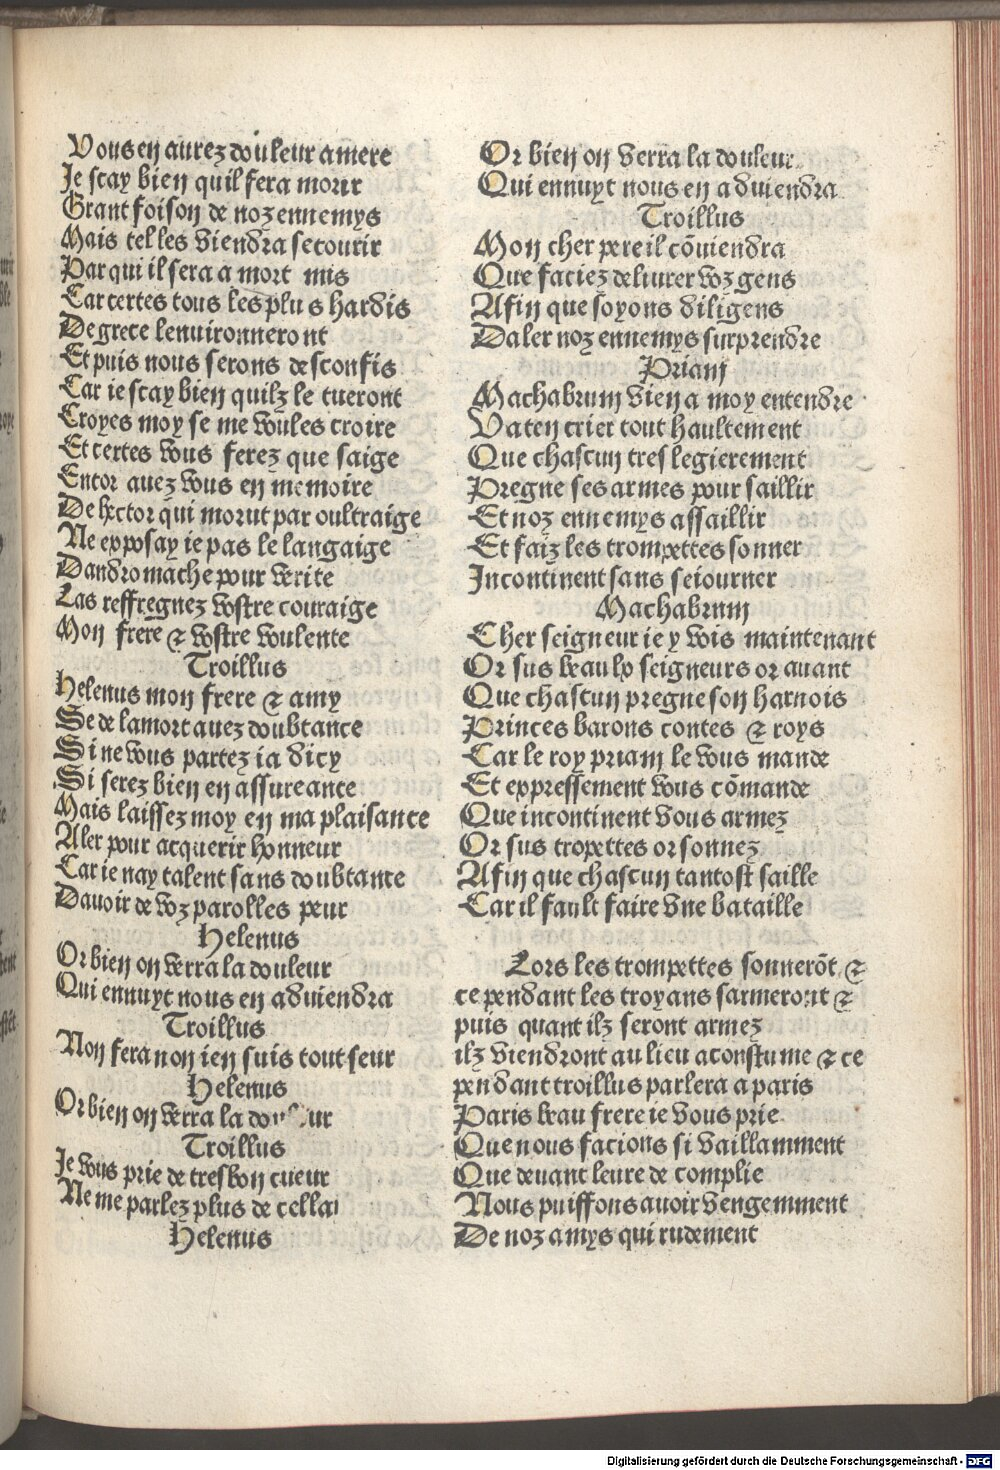 Vous en aurez douleur amere
Je scay bien quil fera morir
Grant foison de noz ennemys
Mais tel les viendra secourir
Par qui il sera a mort mis
Car certes tous les plus hardis
De grece lenuironneront
Et puis nous serons desconfis
Car ie scay bien quilz le tueront
Croyes moy se me voules croire
Et certes vous ferez que saige
Encor auez vous en memoire
De hector qui morut par oultraige
Ne exposay ie pas le langaige
Dandromache pour verite
Las reffregnez vostre couraige
Mon frere & vostre voulente
Troillus
Helenus mon frere & amy
Se de la mort auez doubtance
Si ne vous partez ia dicy
Si serez bien en assureance
Mais laissez moy en ma plaisance
Aler pour acquerir honneur
Car ie nay talent sans doubtance
Dauoir de voz parolles peur
Helenus
Or bien on verra la douleur
Qui ennuyt nous en aduiendra
Troillus
Non fera non ien suis tout seur
Helenus
Or bien on verra la douleur
Troillus
Je vous prie de tresbon cueur
Ne me parlez plus de cella
Helenus
Or bien on verra la douleur
Qui ennuyt nous en aduiendra
Troillus
Mon cher pere il cōuiendra
Que faciez deliurer voz gens
Afin que soyons diligens
Daler noz ennemys surprendre
Priam
Machabrum vien a moy entendre
Va ten crier tout haultement
Que chascun tres legierement
Pregne ses armes pour saillir
Et noz ennemys assaillir
Et faiz les trompettes sonner
Incontinent sans seiourner
Machabrum
Cher seigneur ie y vois maintenant
Or sus beaulx seigneurs or auant
Que chascun pregne son harnois
Princes barons contes & roys
Car le roy priam le vous mande
Et expressement vous cōmande
Que incontinent vous armez
Or sus tropettes or sonnez
Afin que chascun tantost saille
Car il fault faire vne bataille
Lors les trompettes sonnerōt &
ce pendant les troyans sarmeront &
puis quant ilz seront armez
ilz viendront au lieu aconstume & ce
pendant troillus parlera a paris
Paris beau frere ie vous prie
Que nous facions si vaillamment
Que deuant leure de complie
Nous puissons auoir vengemment
De noz amys qui rudement
Digitalisierung gefördert durch die Deutsche Forschungsgemeinschaft - DFG